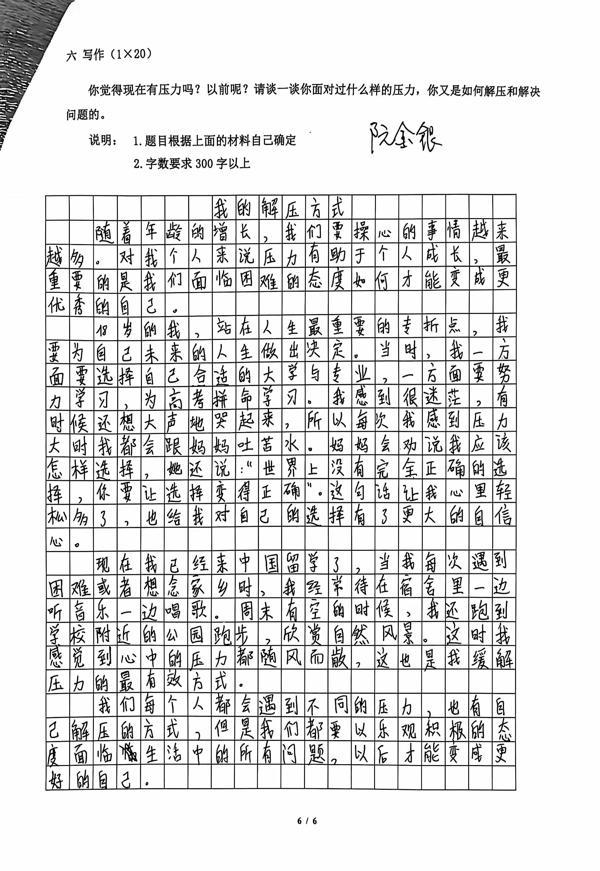 六 写作（1×20）
你觉得现在有压力吗？以前呢？请谈一谈你面对过什么样的压力，你又是如何解压和解决
问题的。
说明： 1.题目根据上面的材料自己确定
阮金银
2.字数要求 300 字以上
我的解压方式
随着年龄的增长，我们要操心的事情越来
越多。对我个人来说压力有助于个人成长，最
重要的是我们面临困难的态度如何才能变成更
优秀的自己。
18岁的我，站在人生最重要的专折点，我
要为自己未来的人生做出决定。当时，我一方
面要选择自己合适的大学与专业，一方面要努
力学习，为高考拼命学习。我感到很迷茫，有
时候还想大声地哭起来，所以每次我感到压力
大时我都会跟妈妈吐苦水。妈妈会劝说我应该
怎样选择，她还说：“世界上没有完全正确的选
择，你要让选择变得正确”。这句话让我心里轻
松多了，也给我对自己的选择有了更大的自信
心。
现在我已经来中国留学了，当我每次遇到
困难或者想念家乡时，我经常待在宿舍里一边
听音乐一边唱歌。周末有空的时候，我还跑到
学校附近的公园跑步，欣赏自然风景。这时我
感觉到心中的压力都随风而散，这也是我缓解
压力的最有效方式。
我们每个人都会遇到不同的压力，也有自
己解压的方式，但是我们都要以乐观积极的态
度面临生活中的所有问题，以后才能变成更
好的自己。
6 / 6